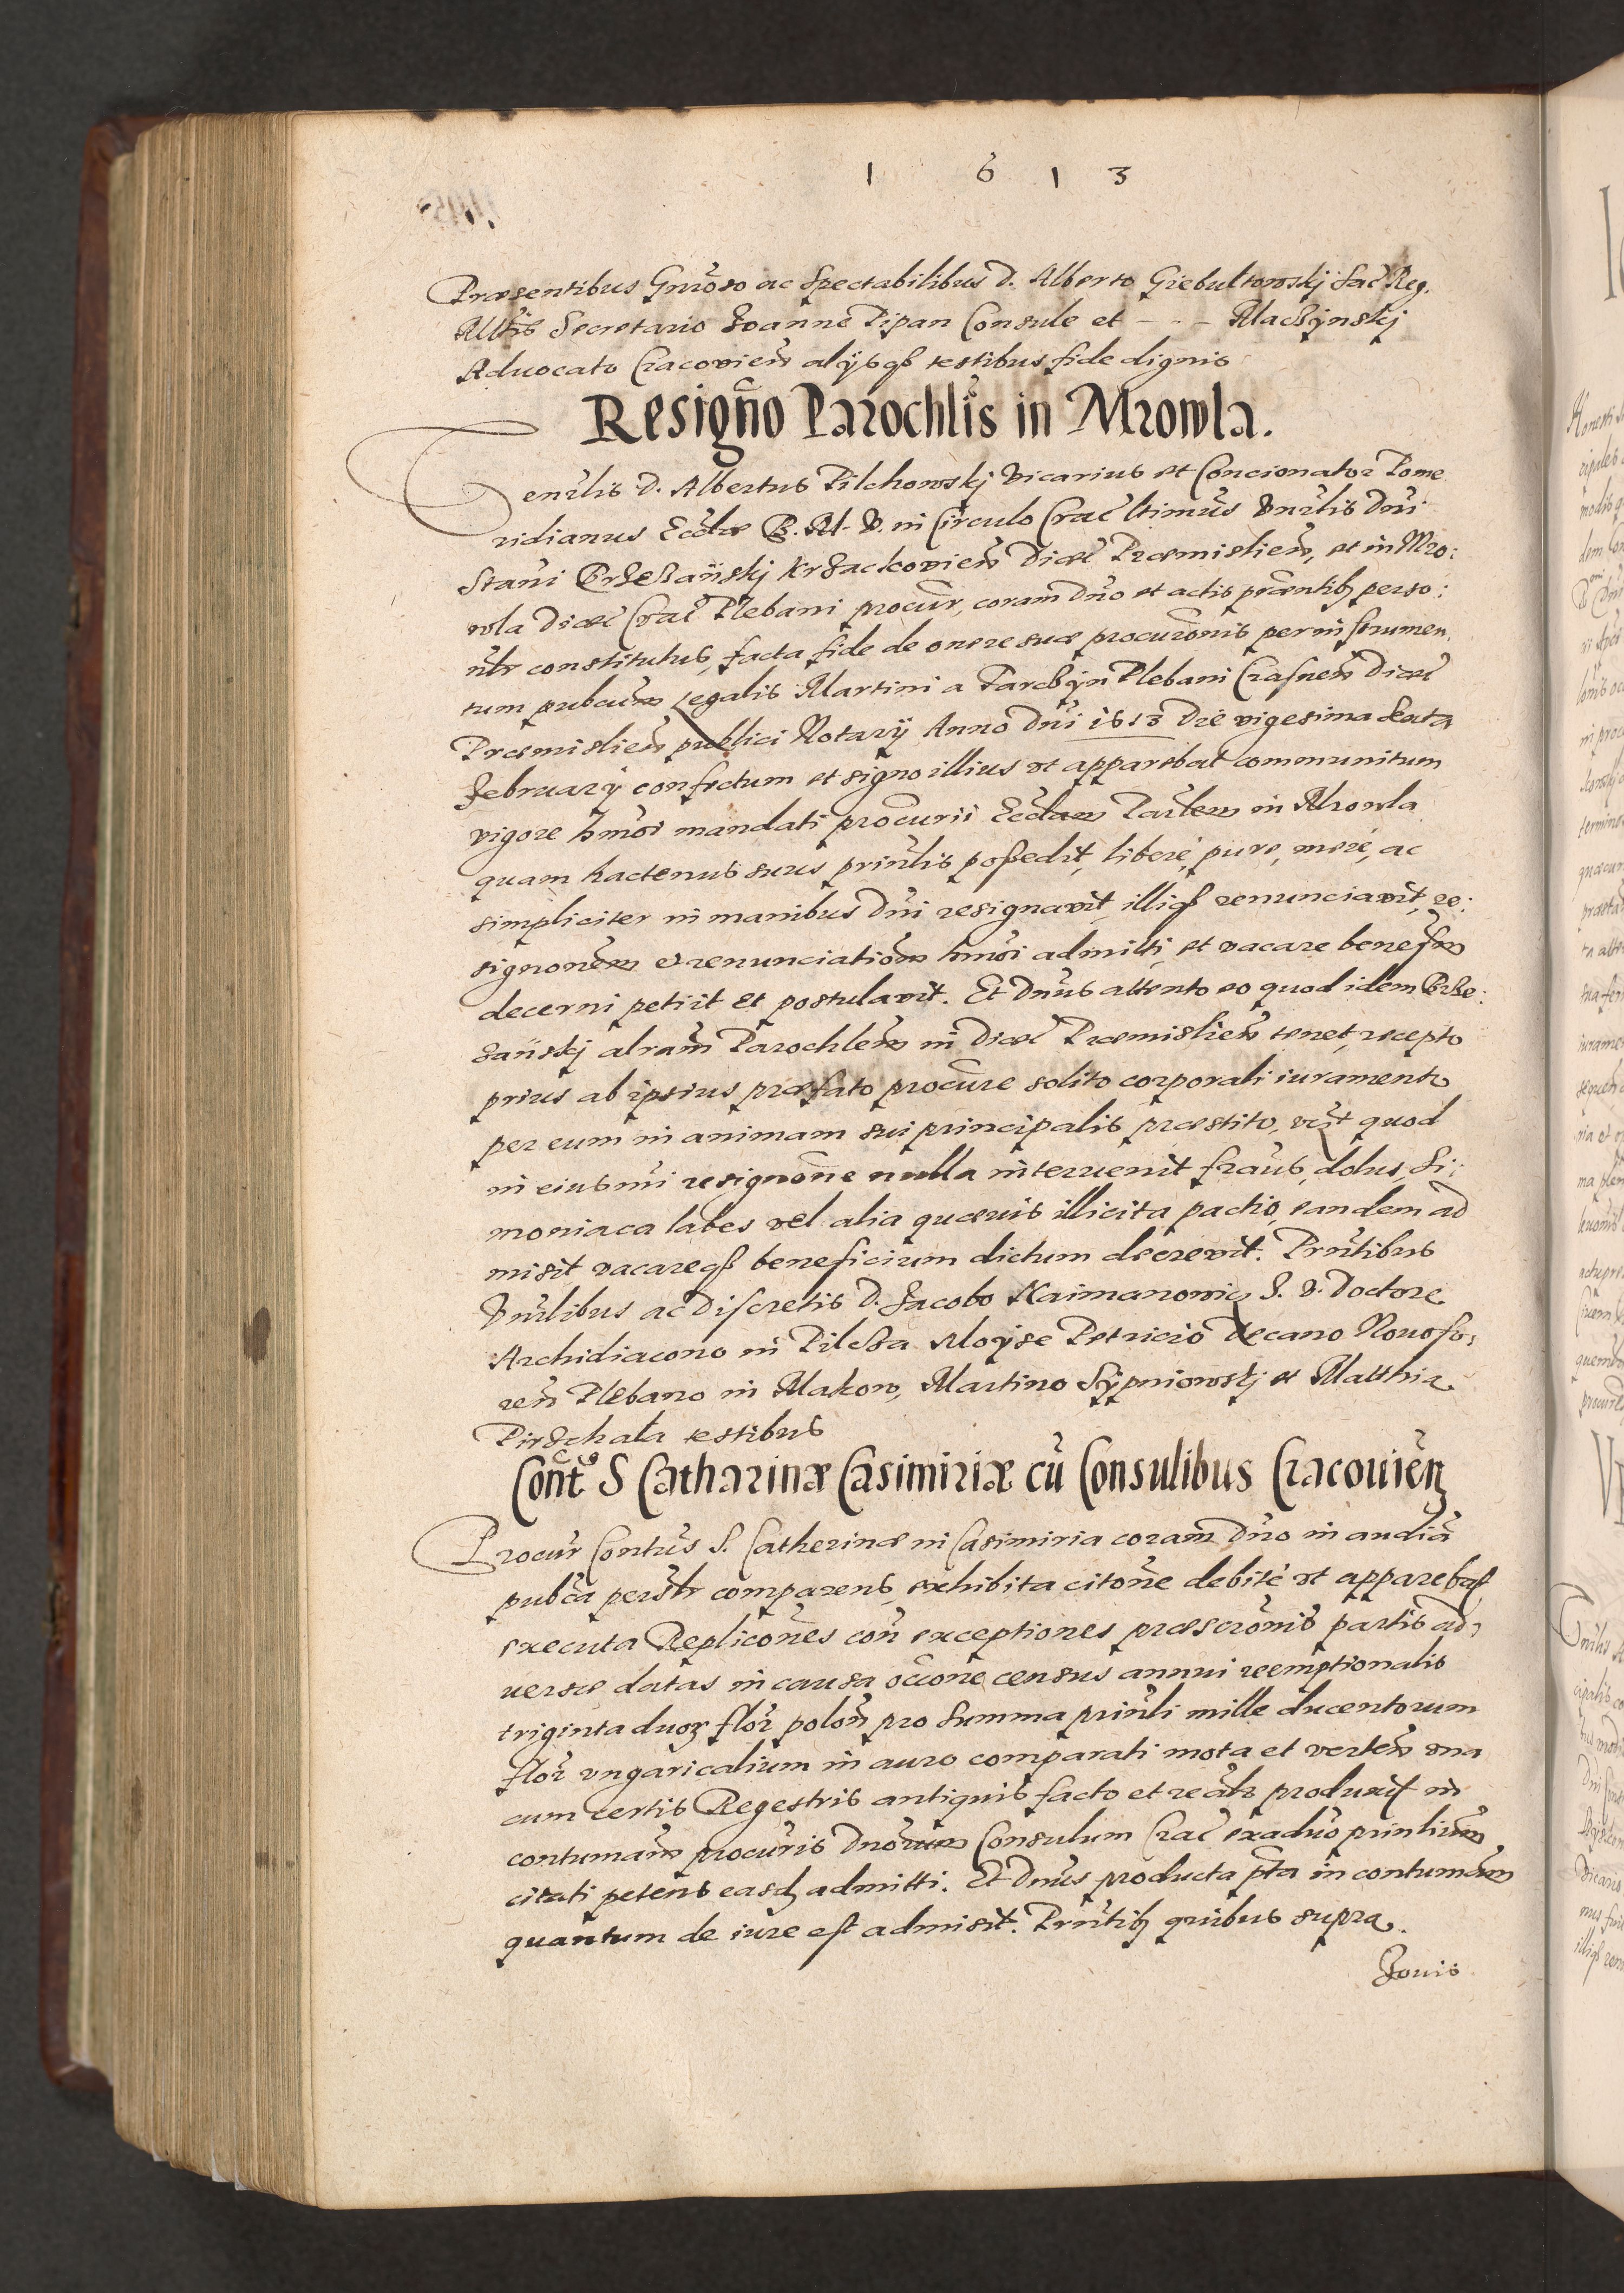 1 6 1 3
Praesentibus Gnroso ac Spectabilibus D. Alberto Giebultowskj Sac Reg.
Mttis Secretario Joanne Pipan Consule et - - - Maczÿnskj
Aduocato Cracovien alÿsq testibus fide dignis
Resigno Parochlis in Mrowla.
Venrlis D. Albertus Pilchowskj Vicarius et Concionator Pome
ridianus Ecclae B. M. V. in Circulo Crac ltimus Vnrlis Dni
Stani Brzezanskj Krzaczkovien Dioec Praemislien, et in Mro:
wla Dioec Crac Plebani procur, coram Dno et actis praentibz perso:
nlr constitutus, facta fide de onere suae procuronis per instrumen
tum pubcum legalis Martini a Parczÿn Plebani Crasnen Dioec
Praemislien publici Notarÿ Anno Dni 1613 Die vigesima sexta
Februarÿ confectum et signo illius ut apparebat communitum
vigore hmoi mandati procurii Ecclam Parlem in Mrowla
quam hactenus suus prinlis possedit, liberè, purè, merè, ac
simpliciter in manibus Dni resignavit, illiq renunciavit, re:
signonem et renunciationem hmoi admitti, et vacare benefm
decerni petiit et postulavit. Et Dnus attento eo quod idem Brze:
zanskj alram Parochlem in Dioec Praemislien tenet, recepto
prius ab ipsius praefato procure solito corporali iuramento
per eum in animam sui principalis praestito, vizt quod
in eiusmi resignone nulla interuenit fraus, dolus, Si:
moniaca labes vel alia quaevis illicita pactio, eandem ad
misit vacareq beneficium dictum decrevit. Prntibus
Vnrlibus ac Discretis D. Jacobo Naimanowic J. V. Doctore
Archidiacono in Pilcza Moÿse Petricio Decano Nouofo:
ren Plebano in Makow, Martino Sÿpniowskj et Matthia
Pirzchała testibus
Contus S Catharinae Casimiriae cu Consulibus Cracouien
Procur Contus S. Catherinae in Casimiria coram Dno in audia
pubca persnlr comparens, exhibita citone debitè ut apparebat
executa Replicones con exceptiones praescronis partis ad,
uersae datas in causa occone census annui reemptionalis
triginta duoz flor polon pro summa prinli mille ducentorum
flor vngaricalium in auro comparati mota et verten una
cum certis Regestris antiquis facto et realr produxit in
contumam procuris Dnorum Consulum Crac ex aduo printium
citati petens easdz admitti. Et Dnus producta pta in contumam
quantum de iure est admisit. Prntibz quibus supra
Jouis